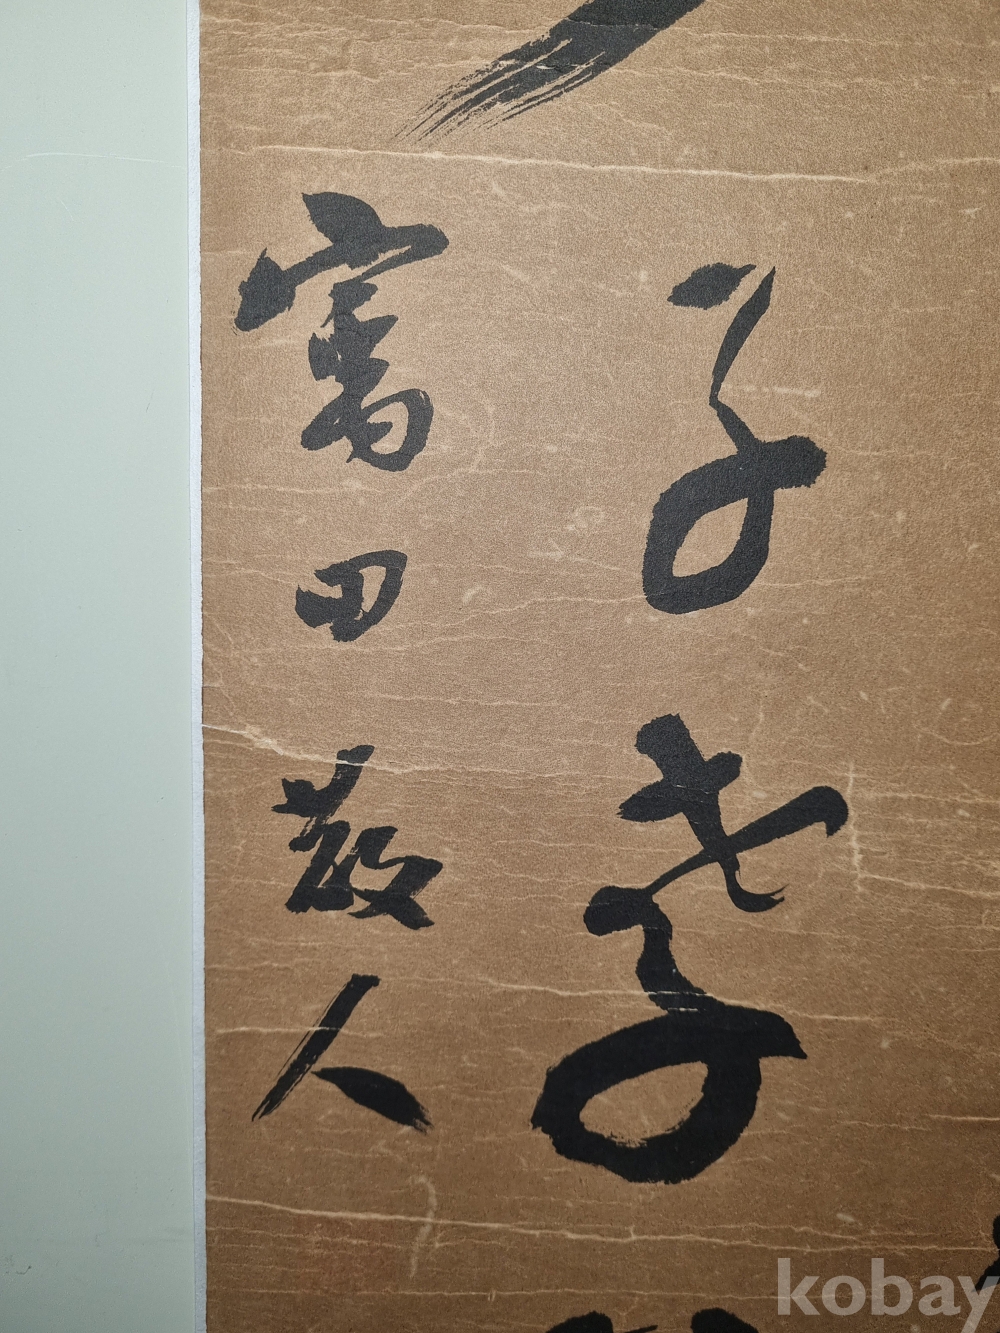 子孝
田散人
kobay